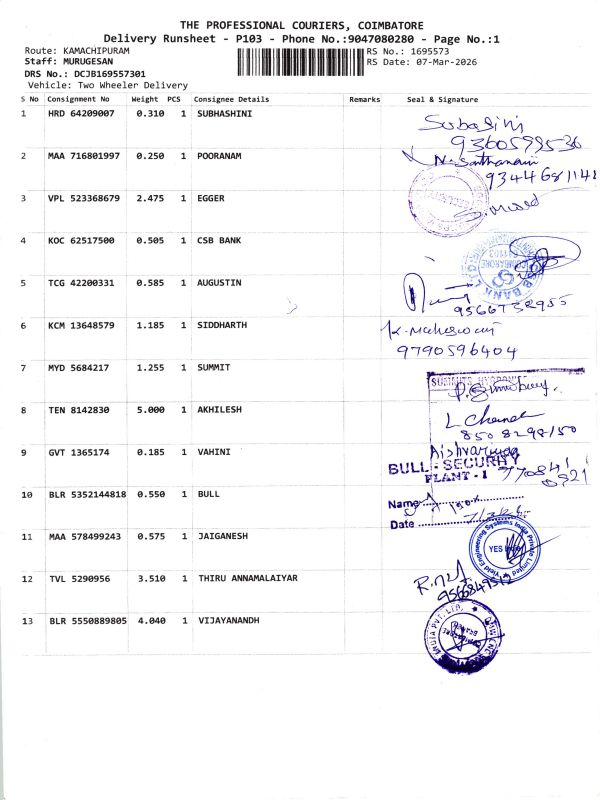 THE PROFESSIONAL COURIERS, COIMBATORE
Delivery Runsheet - P103 - Phone No.:9047080280 - Page No.:1
Route: KAMACHIPURAM
RS No.: 1695573
Staff: MURUGESAN
RS Date: 07-Mar-2026
DRS No.: DCJB169557301
Vehicle: Two Wheeler Delivery
S No Consignment No Weight PCS Consignee Details Remarks Seal & Signature
1 HRD 64209007 0.310 1 SUBHASHINI
Subasini
9360599536
2 MAA 716801997 0.250 1 POORANAM
N. Santhanam
9344681142
3 VPL 523368679 2.475 1 EGGER
4 KOC 62517500 0.505 1 CSB BANK
5 TCG 42200331 0.585 1 AUGUSTIN
9566738955
6 KCM 13648579 1.185 1 SIDDHARTH
K. Maheswari
9790596404
7 MYD 5684217 1.255 1 SUMMIT
8 TEN 8142830 5.000 1 AKHILESH
8508298150
9 GVT 1365174 0.185 1 VAHINI
Aishvariya
BULL - SECURITY
PLANT - 1
770841
0321
10 BLR 5352144818 0.550 1 BULL
Name
Date
11 MAA 578499243 0.575 1 JAIGANESH
Yield Engineering Systems India Private Limited
YES India
12 TVL 5290956 3.510 1 THIRU ANNAMALAIYAR
13 BLR 5550889805 4.040 1 VIJAYANANDH
INDIA PVT. LTD.